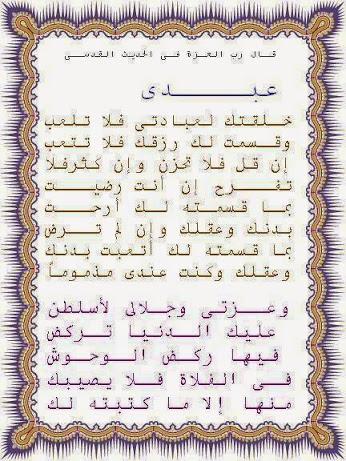 قال رب العزة فى الحديث القدسى
عبدى
خلقتك لعبادتى فلا تلعب
وقسمت لك رزقك فلا تتعب
إن قل فلا تحزن وإن كثرفلا
تفرح إن أنت رضيت
بما قسمته لك أرحت
بدنك وعقلك وإن لم ترض
بما قسمته لك أتعبت بدنك
وعقلك وكنت عندى مذموماً
وعزتى وجلالى لأسلطن
عليك الدنيا تركض
فيها ركض الوحوش
فى الفلاة فلا يصيبك
منها إلا ما كتبته لك